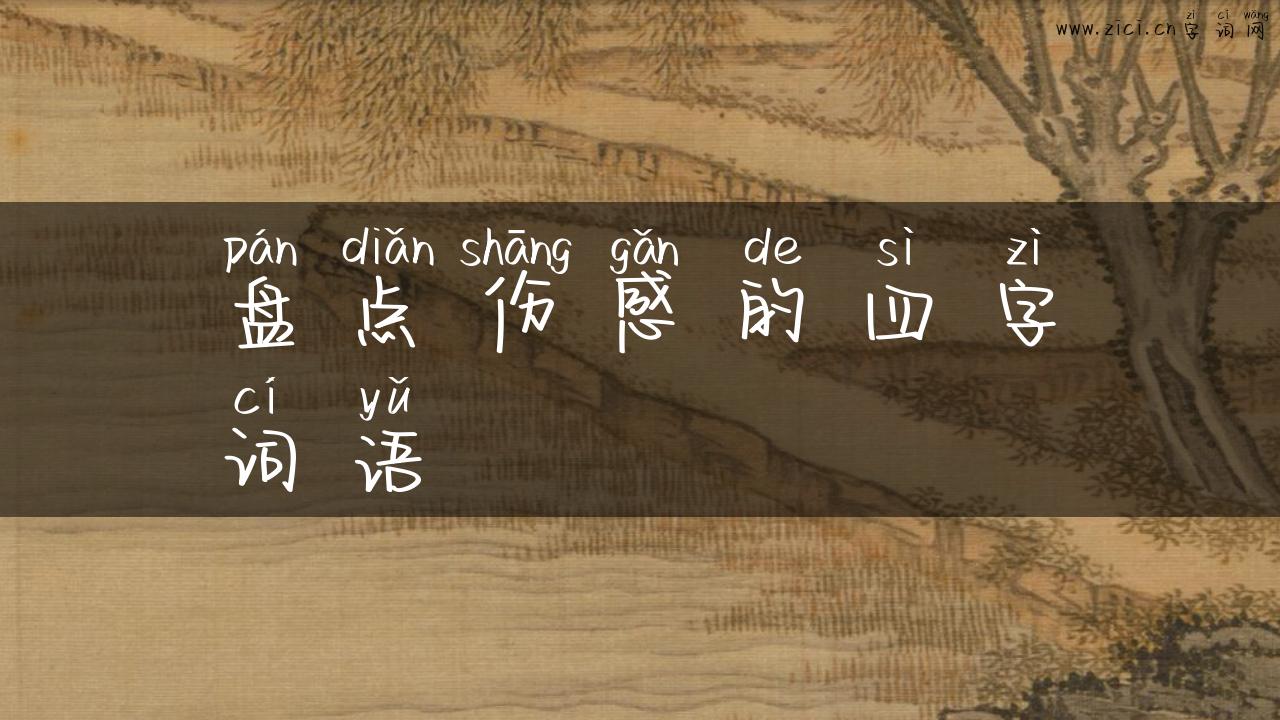 zì cí wǎng
www.zici.cn字词网
pán diǎn shāng gǎn de sì zì
盘点伤感的四字
cí yǔ
词语